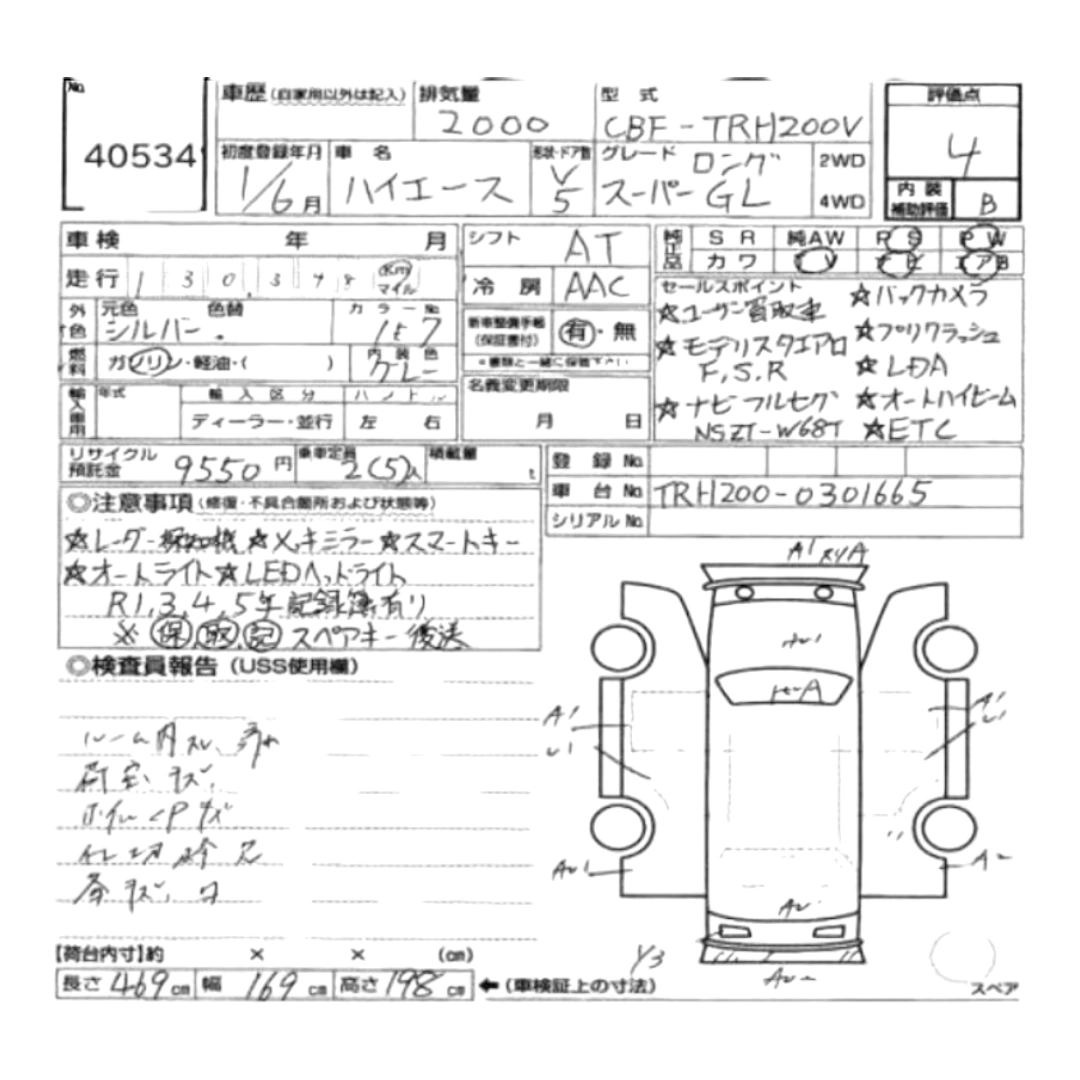 No. 車歴(自家用以外は記入) 排気量 2000 型式 CBF-TRH200V 評価点 4
40534
初度登録年月 1/6月 車名 ハイエース 形状・ドア数 V 5 グレード ロング スーパーGL 2WD 4WD
内装補助評価 B
車検 年 月 シフト AT 純正品 SR 純AW PS PW
走行 130,398 km マイル 冷房 AAC カワ TV ナビ エアB
外色 元色 シルバー 色替 カラーNo. 1E7
新車整備手帳(保証書付) 有・無
※書類と一緒に保管下さい
燃料 ガソリン・軽油・( ) 内装色 グレー
名義変更期限 月 日
輸入車用 年式 輸入区分 ハンドル
ディーラー・並行 左 右
セールスポイント
☆ユーザー買取車 ☆バックカメラ
☆モデリスタエアロ ☆プリクラッシュ
F.S.R ☆LDA
☆ナビフルセグ ☆オートハイビーム
NSZT-W68T ☆ETC
リサイクル預託金 9550円 乗車定員 2(5)人 積載量 t
登録No.
車台No. TRH200-0301665
シリアルNo.
◎注意事項(修復・不具合箇所および状態等)
☆レーダー探知機☆メッキミラー☆スマートキー
☆オートライト☆LEDヘッドライト
R1,3,4,5年記録簿有り
※保取記スペアキー後送
◎検査員報告(USS使用欄)
ルーム内スレ、汚れ
荷室キズ、
ホイールCPキズ
A1
AU1
A1
U1
A1
U1
AU1
A2
【荷台内寸】約 × × (cm)
Y3
長さ 469cm 幅 169cm 高さ 198cm ←(車検証上の寸法)
スペア